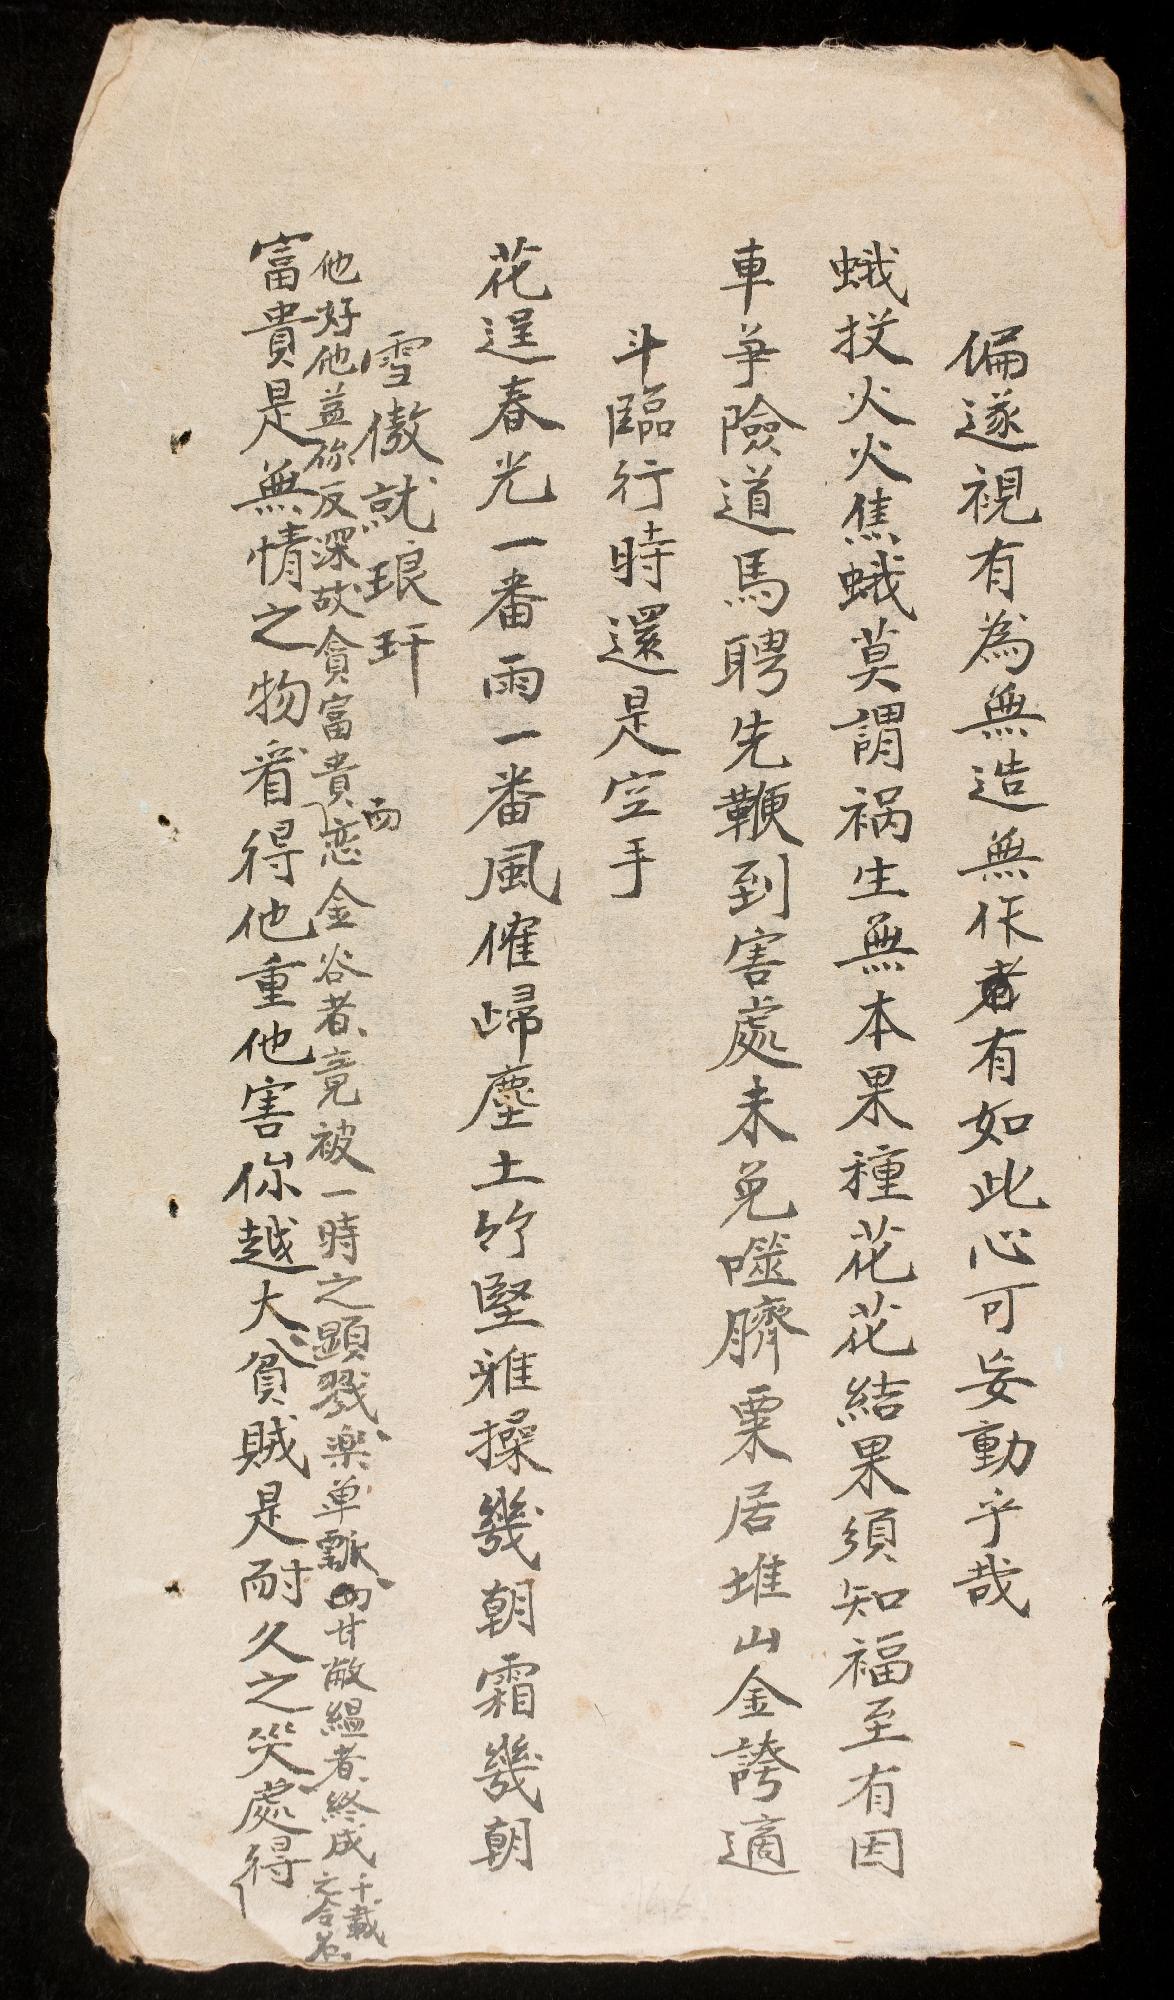 偏遂視有為無造無作者有如此心可妄動乎哉
蛾投火火焦蛾莫謂禍生無本果種花花結果須知福至有因
車爭險道馬聘先鞭到害處未免噬臍粟居堆山金誇過
斗臨行時還是空手
花逞春光一番雨一番風催歸塵土竹堅雅操幾朝霜幾朝
雪傲就琅玕
富貴是無情之物看得他重他害你越大貧賊是耐久之笑處得
他好他益你反深故貪富貴而恋金谷者竟被一時之顕戮楽单瓢而甘敝縕者終成千載之令名